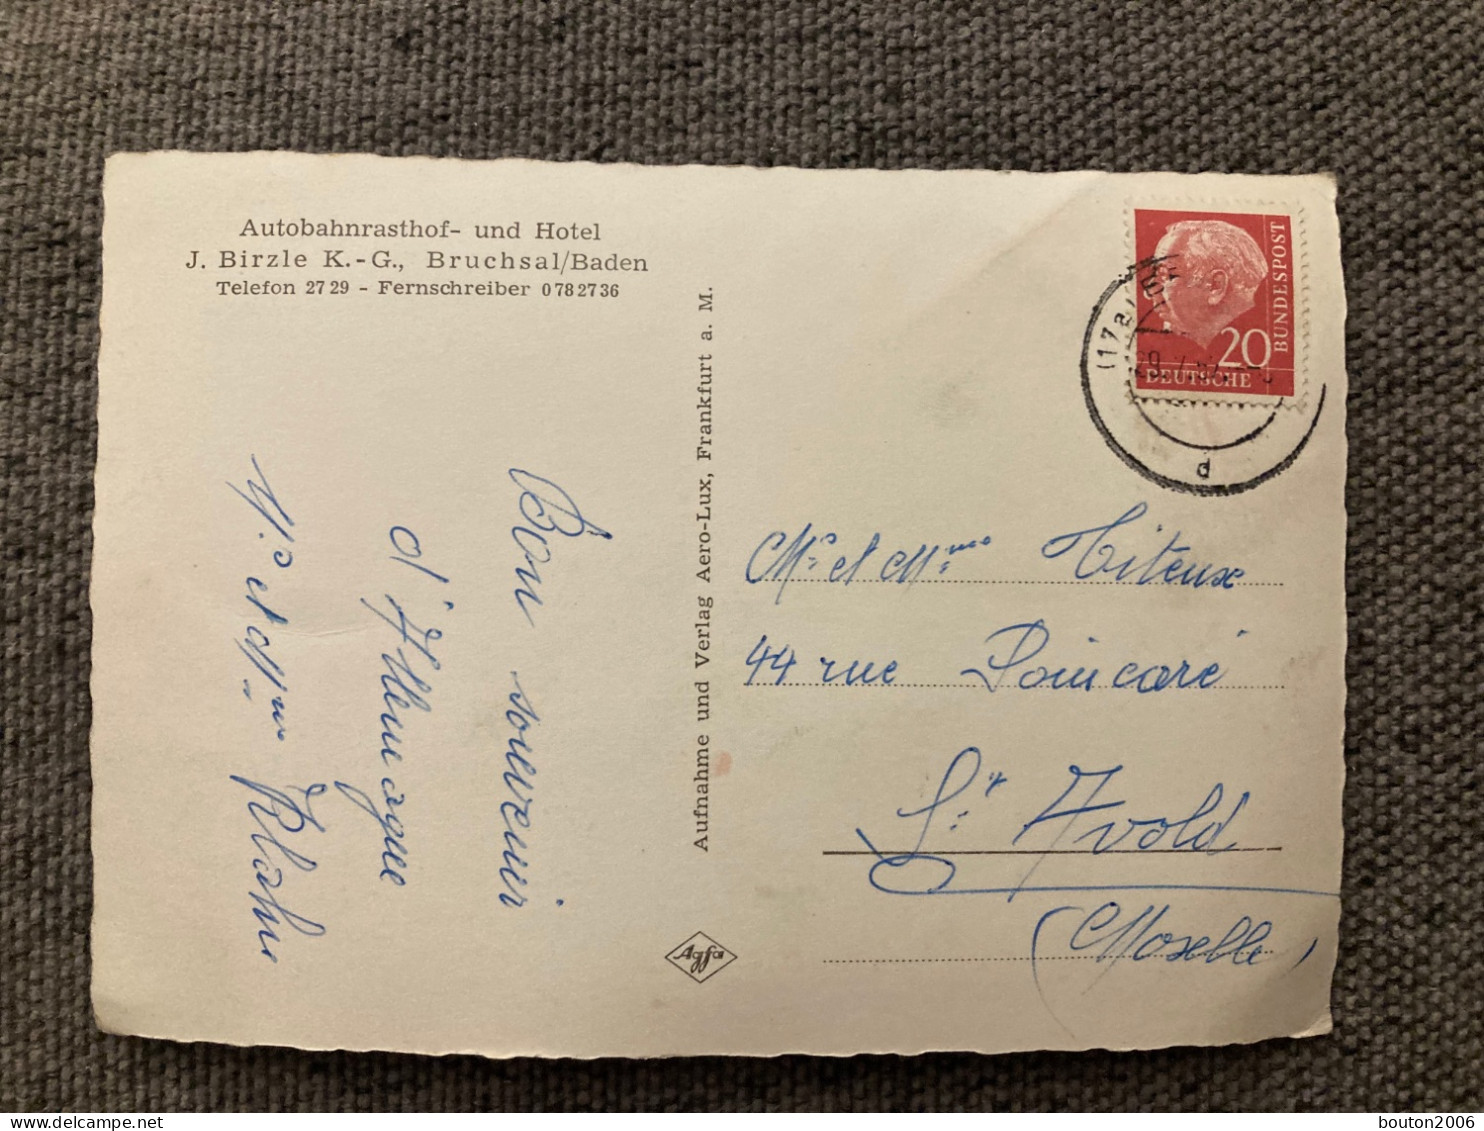 Autobahnrasthof- und Hotel
J. Birzle K.-G., Bruchsal/Baden
Telefon 27 29 - Fernschreiber 0 78 27 36
Bon souvenir
d'Allemagne
Mr et Mme Klahn
Aufnahme und Verlag Aero-Lux, Frankfurt a. M.
Agfa
20
DEUTSCHE
BUNDESPOST
(17a)
d
Mr et Mme Titeux
44 rue Poincaré
St Avold
(Moselle)
bouton2006